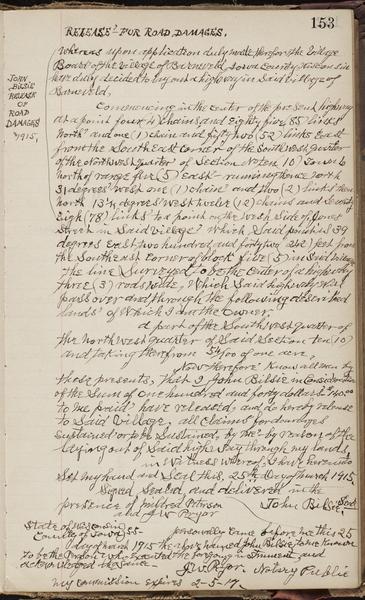 153
RELEASE FOR ROAD DAMAGES.
JOHN
BILSIE
RELEASE
OF
ROAD
DAMAGES
1915.
Whereas upon application duly made therefore the Village
Board of the Village of Barneveld, Iowa County Wisconsin
have duly decided to lay out a highway in Said Village of
Barneveld.
Commencing in the center of the present highway
at a point four 4 chains and Eighty five 85 links
North and one (1) chain and fifty two (52) links East
from the South East Corner of the South West quarter
of the North West quarter of Section No ten 10 Town 6
north of range five (5) East running thence north
31 degrees West one (1) chain and two (2) links thence
north 13 1/2 degrees West twelve (12) chains and Seventy
Eight (78) links to a point on the West Side of Jones
Street in Said Village Which Said point is S 39
degrees East two hundred and forty two feet from
the South east corner of block five (5) in Said Village
The line Surveyed to be the Center of a highway
three (3) rods wide, Which Said highway will
pass over and through the following described
lands of Which I am the owner.
a part of the South West quarter of
the north West quarter of Said Section ten (10)
and taking therefrom 54/100 of one acre,
Now Therefore Know all men by
these presents, that I John Bilsie in Consideration
of the Sum of One hundred and forty dollars $140.00
to me paid have released, and do hereby release
to Said Village, all claims for damages
Sustained or to be Sustained, by me by reason of the
laying out of Said high way through my lands,
in Witness Whereof, I have hereunto
Set my hand and Seal this, 25th day of March 1915,
Signed Sealed, and delivered in the
presence of Mildred Peterson John Bilsie Seal
and J W Pryor
State of Wisconsin
County of Iowa SS- personally came before me this 25
day of March 1915 the above named John Bilsie to me Known
to be the person who executed the foregoing instrument and
acknowledged the Same
J W Pryor. Notary Public
my commission expires 2-5-17.